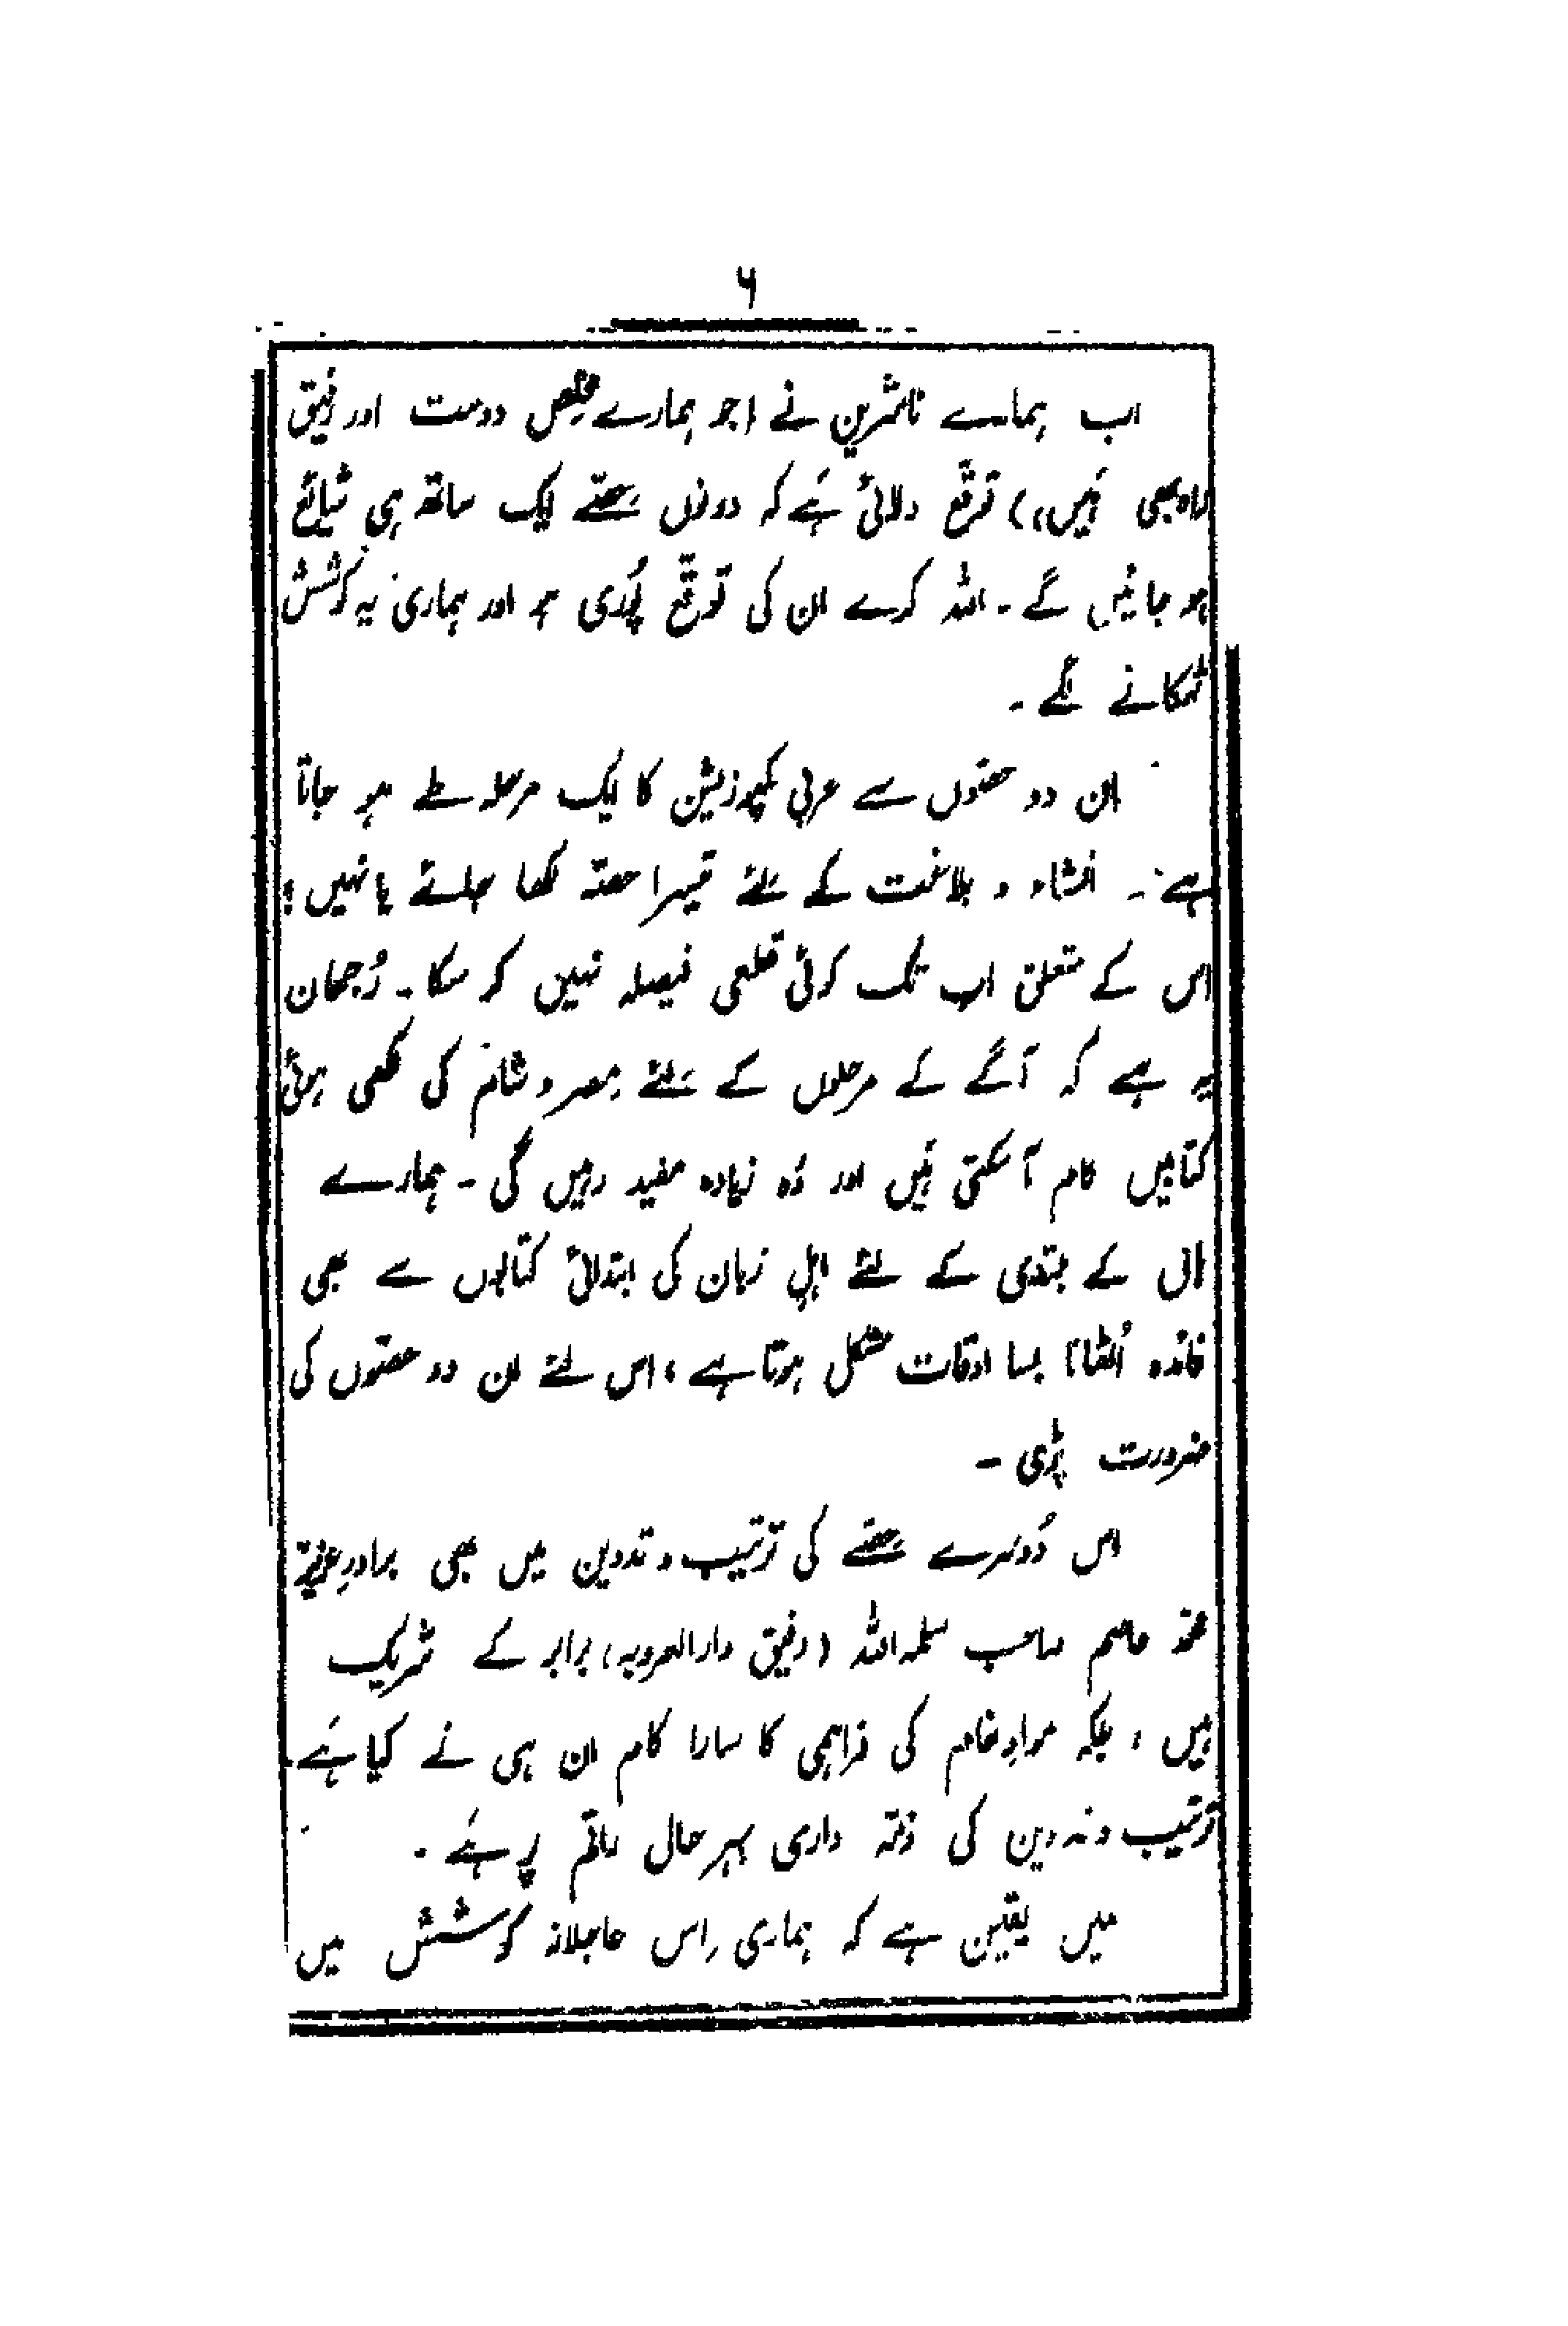 ۶
اب ہمارے ناشرین نے (جو ہمارے مخلص دوست اور رفیق
راہ بھی ہَیں،) توقّع دلائی ہَے کہ دونوں حصّے ایک ساتھ ہی شائع
ہو جائیں گے ۔ اللہ کرے ان کی توقّع پُوری ہو اور ہماری یہ کوشش
ٹھکانے لگے ۔
ان دو حصّوں سے عربی کمپوزیشن کا ایک مرحلہ طے ہو جاتا
ہے ۔ انشاء و بلاغت کے لئے تیسرا حصّہ لکھا جائے یا نہیں ؟
اس کے متعلق اب تک کوئی قطعی فیصلہ نہیں کر سکا ۔ رُجحان
یہ ہے کہ آگے کے مرحلوں کے لئے مصر و شام کی لکھی ہوئی
کتابیں کام آ سکتی ہَیں اور وُہ زیادہ مفید رہیں گی ۔ ہمارے
ہاں کے مبتدی کے لئے اہلِ زبان کی ابتدائی کتابوں سے بھی
فائدہ اُٹھانا بسا اوقات مشکل ہوتا ہے ، اس لئے ان دو حصّوں کی
ضرورت پڑی ۔
اس دُوسرے حصّے کی ترتیب و تدوین میں بھی برادرِ عزیز
محمّد عاصم صاحب سلمہ اللہ (رفیق دارالعروبہ) برابر کے شریک
ہیں ، بلکہ موادِ خام کی فراہمی کا سارا کام ان ہی نے کیا ہَے
ترتیب و تدوین کی ذمّہ داری بہرحال راقم پر ہَے ۔
میں یقین ہے کہ ہماری اِس عاجلانہ کوشش میں